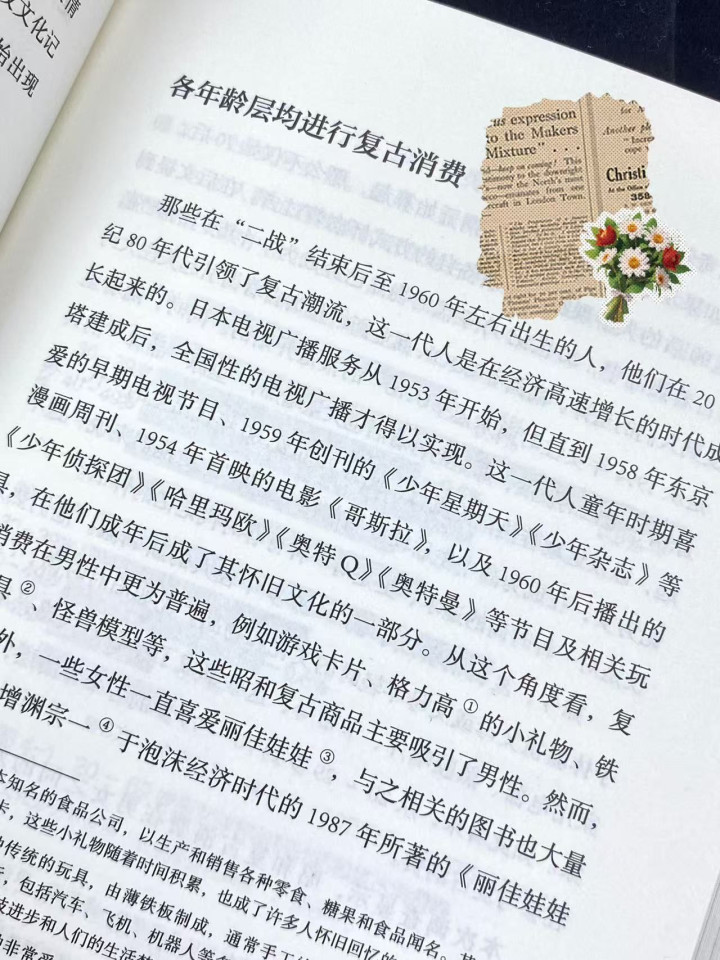 情
文化记
始出现
各年龄层均进行复古消费
us expression
to the Makers
Mixture" . . .
d—keep on coming! This
timony to the downright
—now the North's most
co—emanates from one
craft in London Town.
for
Another
cope
Christi
At the Office
358
那些在“二战”结束后至 1960 年左右出生的人，他们在 20
纪 80 年代引领了复古潮流，这一代人是在经济高速增长的时代成
长起来的。日本电视广播服务从 1953 年开始，但直到 1958 年东京
塔建成后，全国性的电视广播才得以实现。这一代人童年时期喜
爱的早期电视节目、1959 年创刊的《少年星期天》《少年杂志》等
漫画周刊、1954 年首映的电影《哥斯拉》，以及 1960 年后播出的
《少年侦探团》《哈里玛欧》《奥特 Q》《奥特曼》等节目及相关玩
具，在他们成年后成了其怀旧文化的一部分。从这个角度看，复
消费在男性中更为普遍，例如游戏卡片、格力高①的小礼物、铁
具②、怪兽模型等，这些昭和复古商品主要吸引了男性。然而，
外，一些女性一直喜爱丽佳娃娃③，与之相关的图书也大量
增渊宗一④于泡沫经济时代的 1987 年所著的《丽佳娃娃
本知名的食品公司，以生产和销售各种零食、糖果和食品闻名。其
卡，这些小礼物随着时间积累，也成了许多人怀旧回忆的
种传统的玩具，由薄铁板制成，通常手工
包括汽车、飞机、机器人等
技进步和人们的生活
非常受